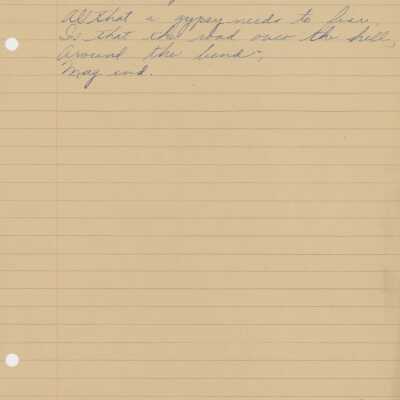 All that a gypsy needs to fear,
Is that the road over the hill,
Around the bend,
May end.